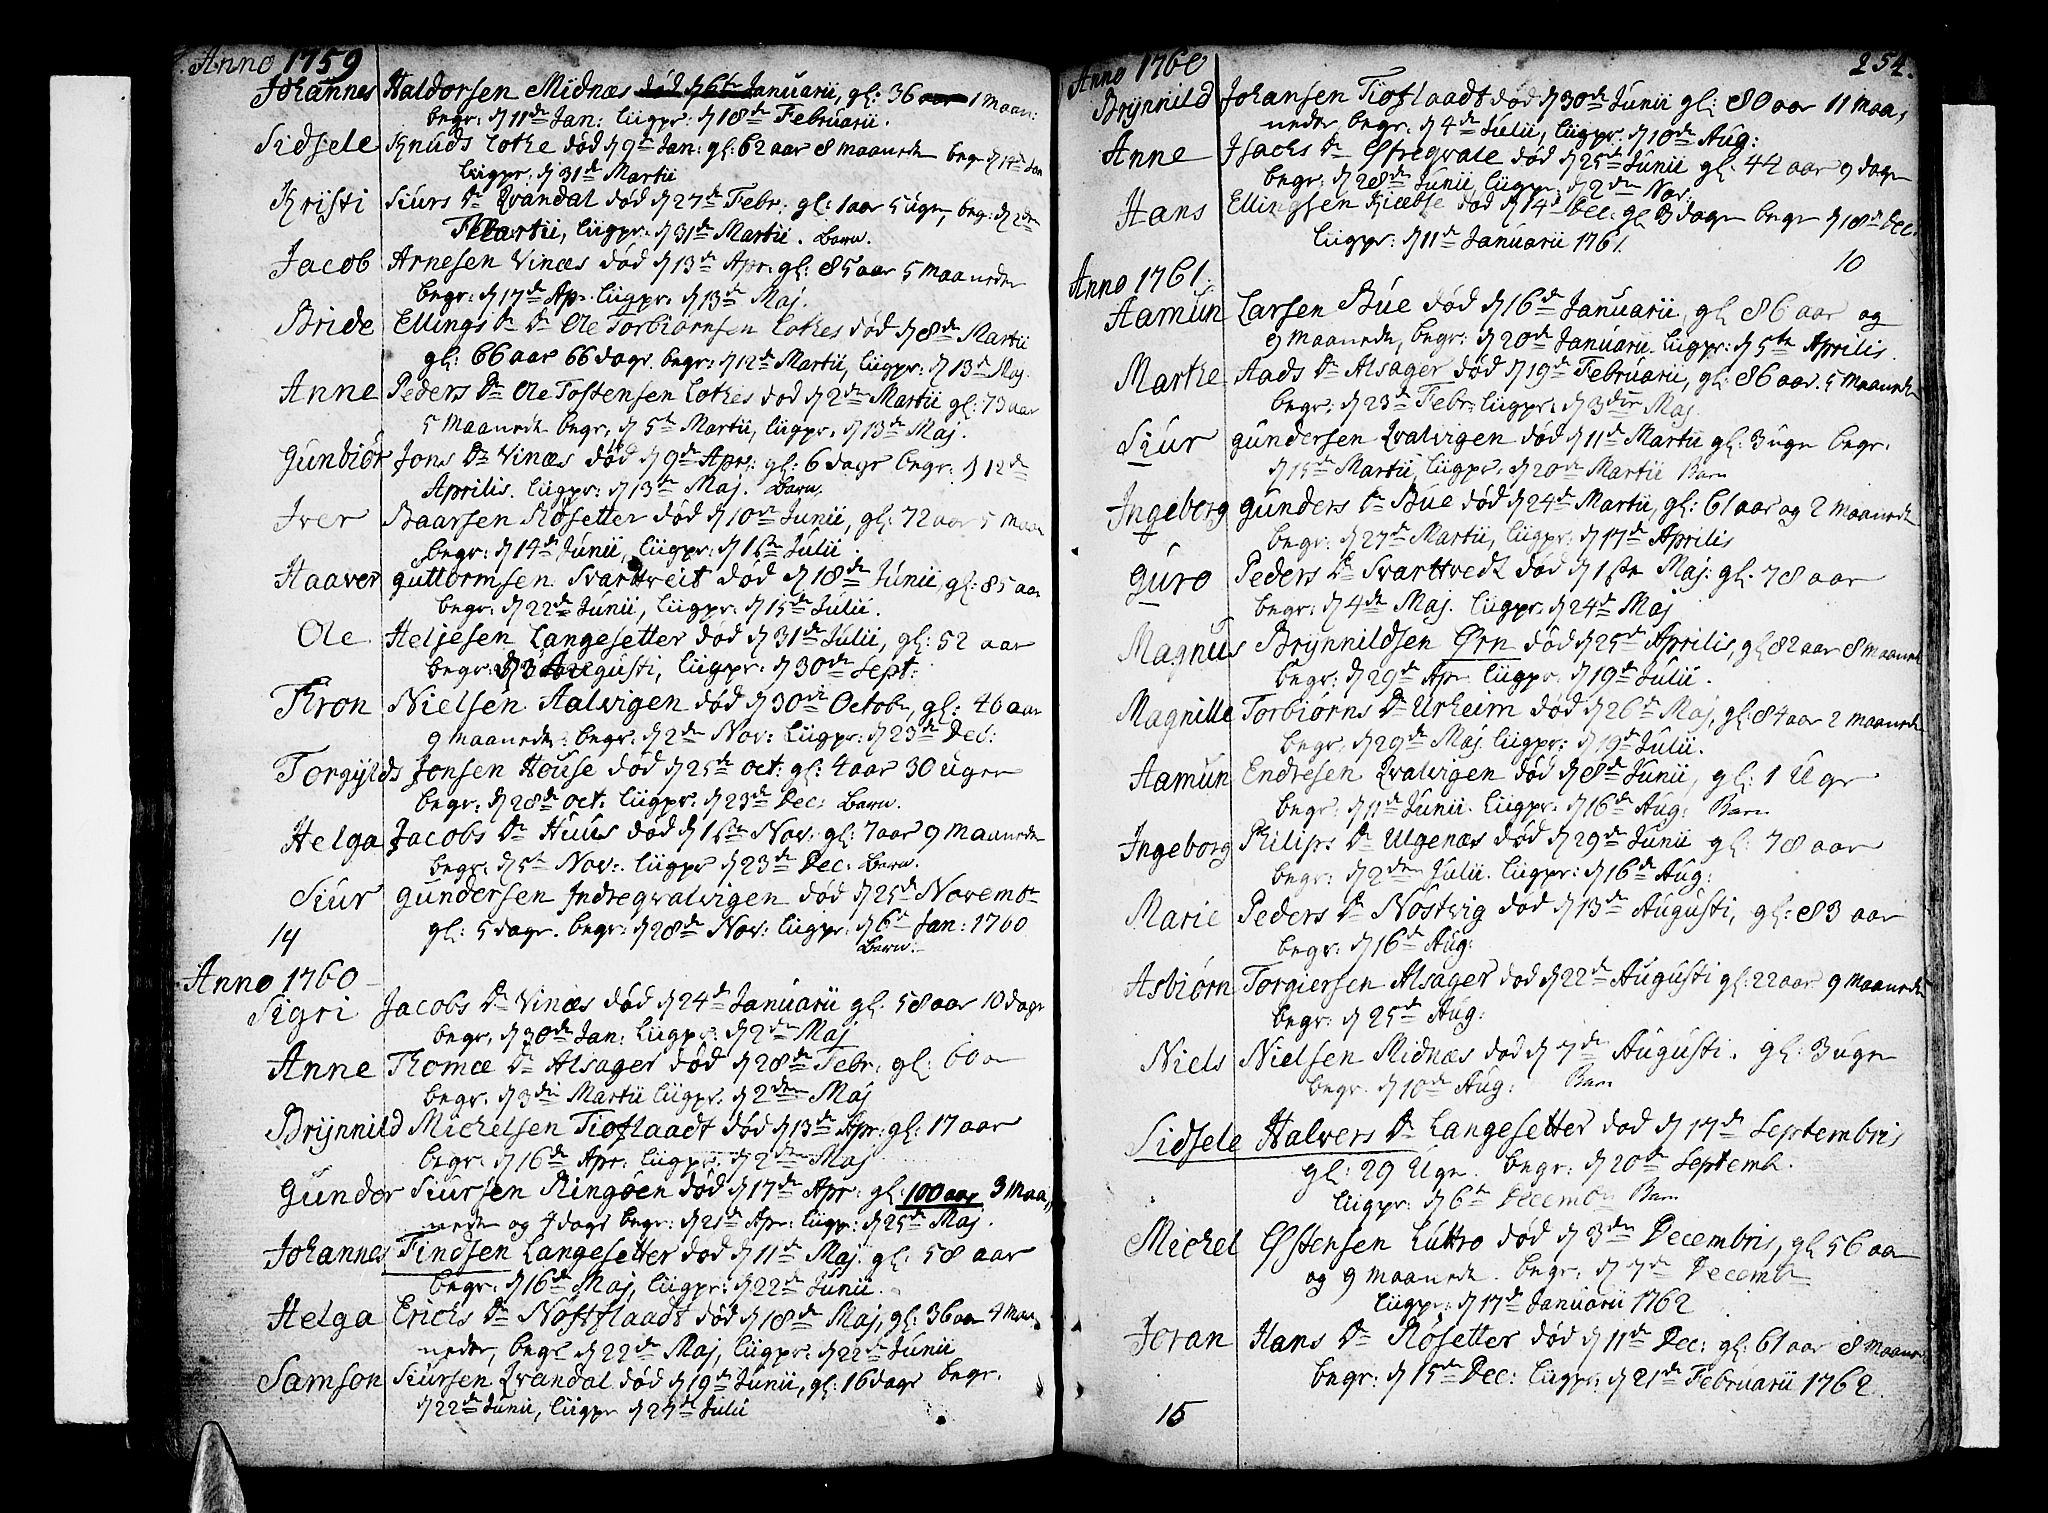 Anno 1759
Johannes Haldorsen Midnæs død d 6te Januarii, gl: 36 aar 1 maan:
begr: d 11de Jan: liigpr: d 18de Februarii.
Sidsele Knuds Lothe død d 9de Jan: gl: 62 aar 8 maaneder begr d 14de Jan
liigpr: d 31de Martii
Kristi Siurs Dr Qvandal død d 27de Febr: gl: 1 aar 5 uger, begr: d 2den
Martii, liigpr: d 31de Martii. barn.
Jacob Arnesen Vinæs død d 13de Apr: gl: 85 aar 5 maaneder
begr: d 17de Apr. liigpr: d 13de Maj.
Bride Ellings Dr Ole Torbiørnsen Lothes død d 8de Martii
gl: 66 aar 66 dage begr: d 12te Martii, liigpr: d 13de Maj.
Anne Peders Dr Ole Tostensen Lothes død d 2den Martii gl: 73 aar
5 maaneder begr: d 5te Martii, liigpr: d 13de Maj.
Gunbiør Jons Dr Vinæs død d 9de Apr: gl: 6 dage begr: d 12de
Aprilis. liigpr: d 13de Maj. barn.
Iver Baarsen Røsetter død d 10de Junii, gl: 72 aar 5 maan
begr: d 14de Junii, liigpr: d 1ste Julii.
Haaver guttormsen Svartveit død d 18de Junii, gl: 85 aar
begr: d 22de Junii, liigpr: d 15de Julii.
Ole Heljesen Langesetter død d 31de Julii, gl: 52 aar
begr: d 3 Augusti, liigpr: d 30de Sept:
Thron Nielsen Aalvigen død d 30de Octobr, gl: 46 aar
9 maaneder: begr: d 2den Nov: liigpr: d 23de Dec:
Torgylds Jonsen House død d 25de oct: gl: 4 aar 30 uger
begr: d 28de oct: liigpr: d 23de Dec: barn.
Helga Jacobs Dr Huus død d 1ste Nov: gl: 7 aar 9 maaneder
begr: d 5te Nov: liigpr d 23de Dec: barn.
Siur gundersen Indreqvalvigen død d 25de Novembr
gl: 5 dage. begr: d 28de Nov: liigpr: d 6te Jan: 1760
barn.
14
Anno 1760
Sigri Jacobs Dr Vinæs død d 24de Januarii gl: 58 aar 10 dage
begr, d 30de Jan: liigpr: d 2den Maj
Anne Thomæ Dr Alsager død d 28de Febr: gl: 60 aar
begr. d 3die Martii liigpr: d 2den Maj
Brÿnnild Michelsen Tioflaadt død d 13de Apr: gl: 17 aar
begr: d 16de Apr: liigpr: d 2den Maj
Gunder Siursen Ringøen død d 17de Apr: gl: 100 aar 3 maa,
neder og 4 dage begr: d 21de Apr: liigpr: d 25de Maj.
Johannes Findsen Langesetter død d 11de Maj. gl: 58 aar
begr: d 16de Maj, liigpr: d 22de Junii.
Helga Erichs Dr Nøstflaadt død d 18de Maj, gl: 36 aar 4 maa,
neder, begr d 22de Maj, liigpr: d 22de Junii
Samson Siursen Qvandal død d 19de Junii, gl: 16 dage begr.
d 22de Junii, liigpr d 27de Julii
254.
Anno 1760
Brÿnnild Johansen Tioflaadt død d 30de Junii gl: 80 aar 11 maa,
neder, begr: d 4de Julii, liigpr: d 10de Aug:
Anne Isachs Dr død d 25de Junii gl: 44 aar 9 dage
begr: d 28de Junii, liigpr: d 2den Nov:
Hans Ellingsen død d 14de Dec: gl 3 dage begr d 18de Dec:
liigpr: d 11de Januarii 1761.
10
Anno 1761.
Aamun Larsen Bue død d 16de Januarii, gl 86 aar og
9 maaneder, begr: d 20de Januarii. liigpr: d 5te Aprilis.
Marthe Aads Dr Alsager død d 19de Februarii, gl: 86 aar. 5 maaneder
begr: d 23de Febr: liigpr: d 3die Maj.
Siur gundersen Qvalvigen død d 11de Martii gl: 3 uger begr.
d 15de Martii, liigpr: d 20de Martii Barn
Ingeborg gunders Dr Bue død d 24de Martii, gl: 61 aar og 2 maaneder
begr: d 27de Martii, liigpr: d 17de Aprilis
Guro Peders Dr Svarttvedt død d 1ste Maj: gl: 78 aar
begr: d 4de Maj. liigpr: d 24de Maj
Magnus Brynnildsen Ørn død d 25de Aprilis, gl 82 aar 8 maaneder
begr: d 29de Apr liigpr: d 19de Julii.
Magnille Torbiørns Dr Urheim død d 26de Maj, gl: 84 aar 2 maaneder
begr: d 29de Maj. liigpr: d 19de Julii.
Aamun Endresen Qvalvigen død d 8de Junii, gl: 1 Uge
begr: d 11de Junii. liigpr: d 16de Aug: Barn
Ingeborg Philips Dr Ulgenæs død d 29de Junii gl: 78 aar
begr: d 2den Julii. liigpr: d 16de Aug:
Marie Peders Dr Nøstvig død d 13de Augusti, gl: 83 aar
begr: d 16de Aug:
Asbiørn Torgiersen Alsager død d 22de Augusti gl: 22 aar 9 maaneder
begr: d 25de Aug:
Niels Nielsen Midnæs død d 7de Augusti. gl: 3 uger
begr. d 10de Aug: Barn
Sidsele Halvers Dr Langesetter død d 17de Septembris
gl: 29 Uger. begr: d 20de Septemb.
liigpr: d 6te Decembr Barn
Michel Østensen Luttro død d 3die Decembris, gl 56 aar
og 9 maaneder. begr: d 7de Decembr
liigpr: d 17de Januarii 1762
Joran Hans Dr Røsetter død d 11de Dec: gl: 61 aar 8 maaneder
begr: d 15de Dec: liigpr: d 21de Februarii 1762.
15